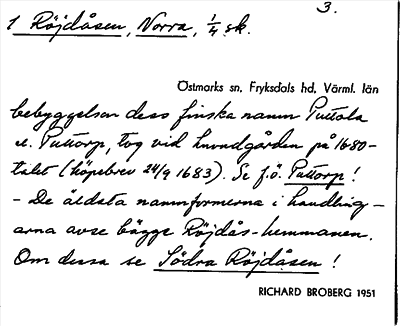 3.
1 Röjdåsen, Norra, 1/4 sk.
Östmarks sn. Fryksdals hd. Värml. län
bebyggelsen dess finska namn Puttola
el. Puttorp, tog vid huvudgården på 1680-
talet (köpebrev 24/9 1683). Se f.ö. Puttorp!
- De äldsta namnformerna i handling-
arna avse bägge Röjdås-hemmanen.
Om dessa se Södra Röjdåsen!
RICHARD BROBERG 1951